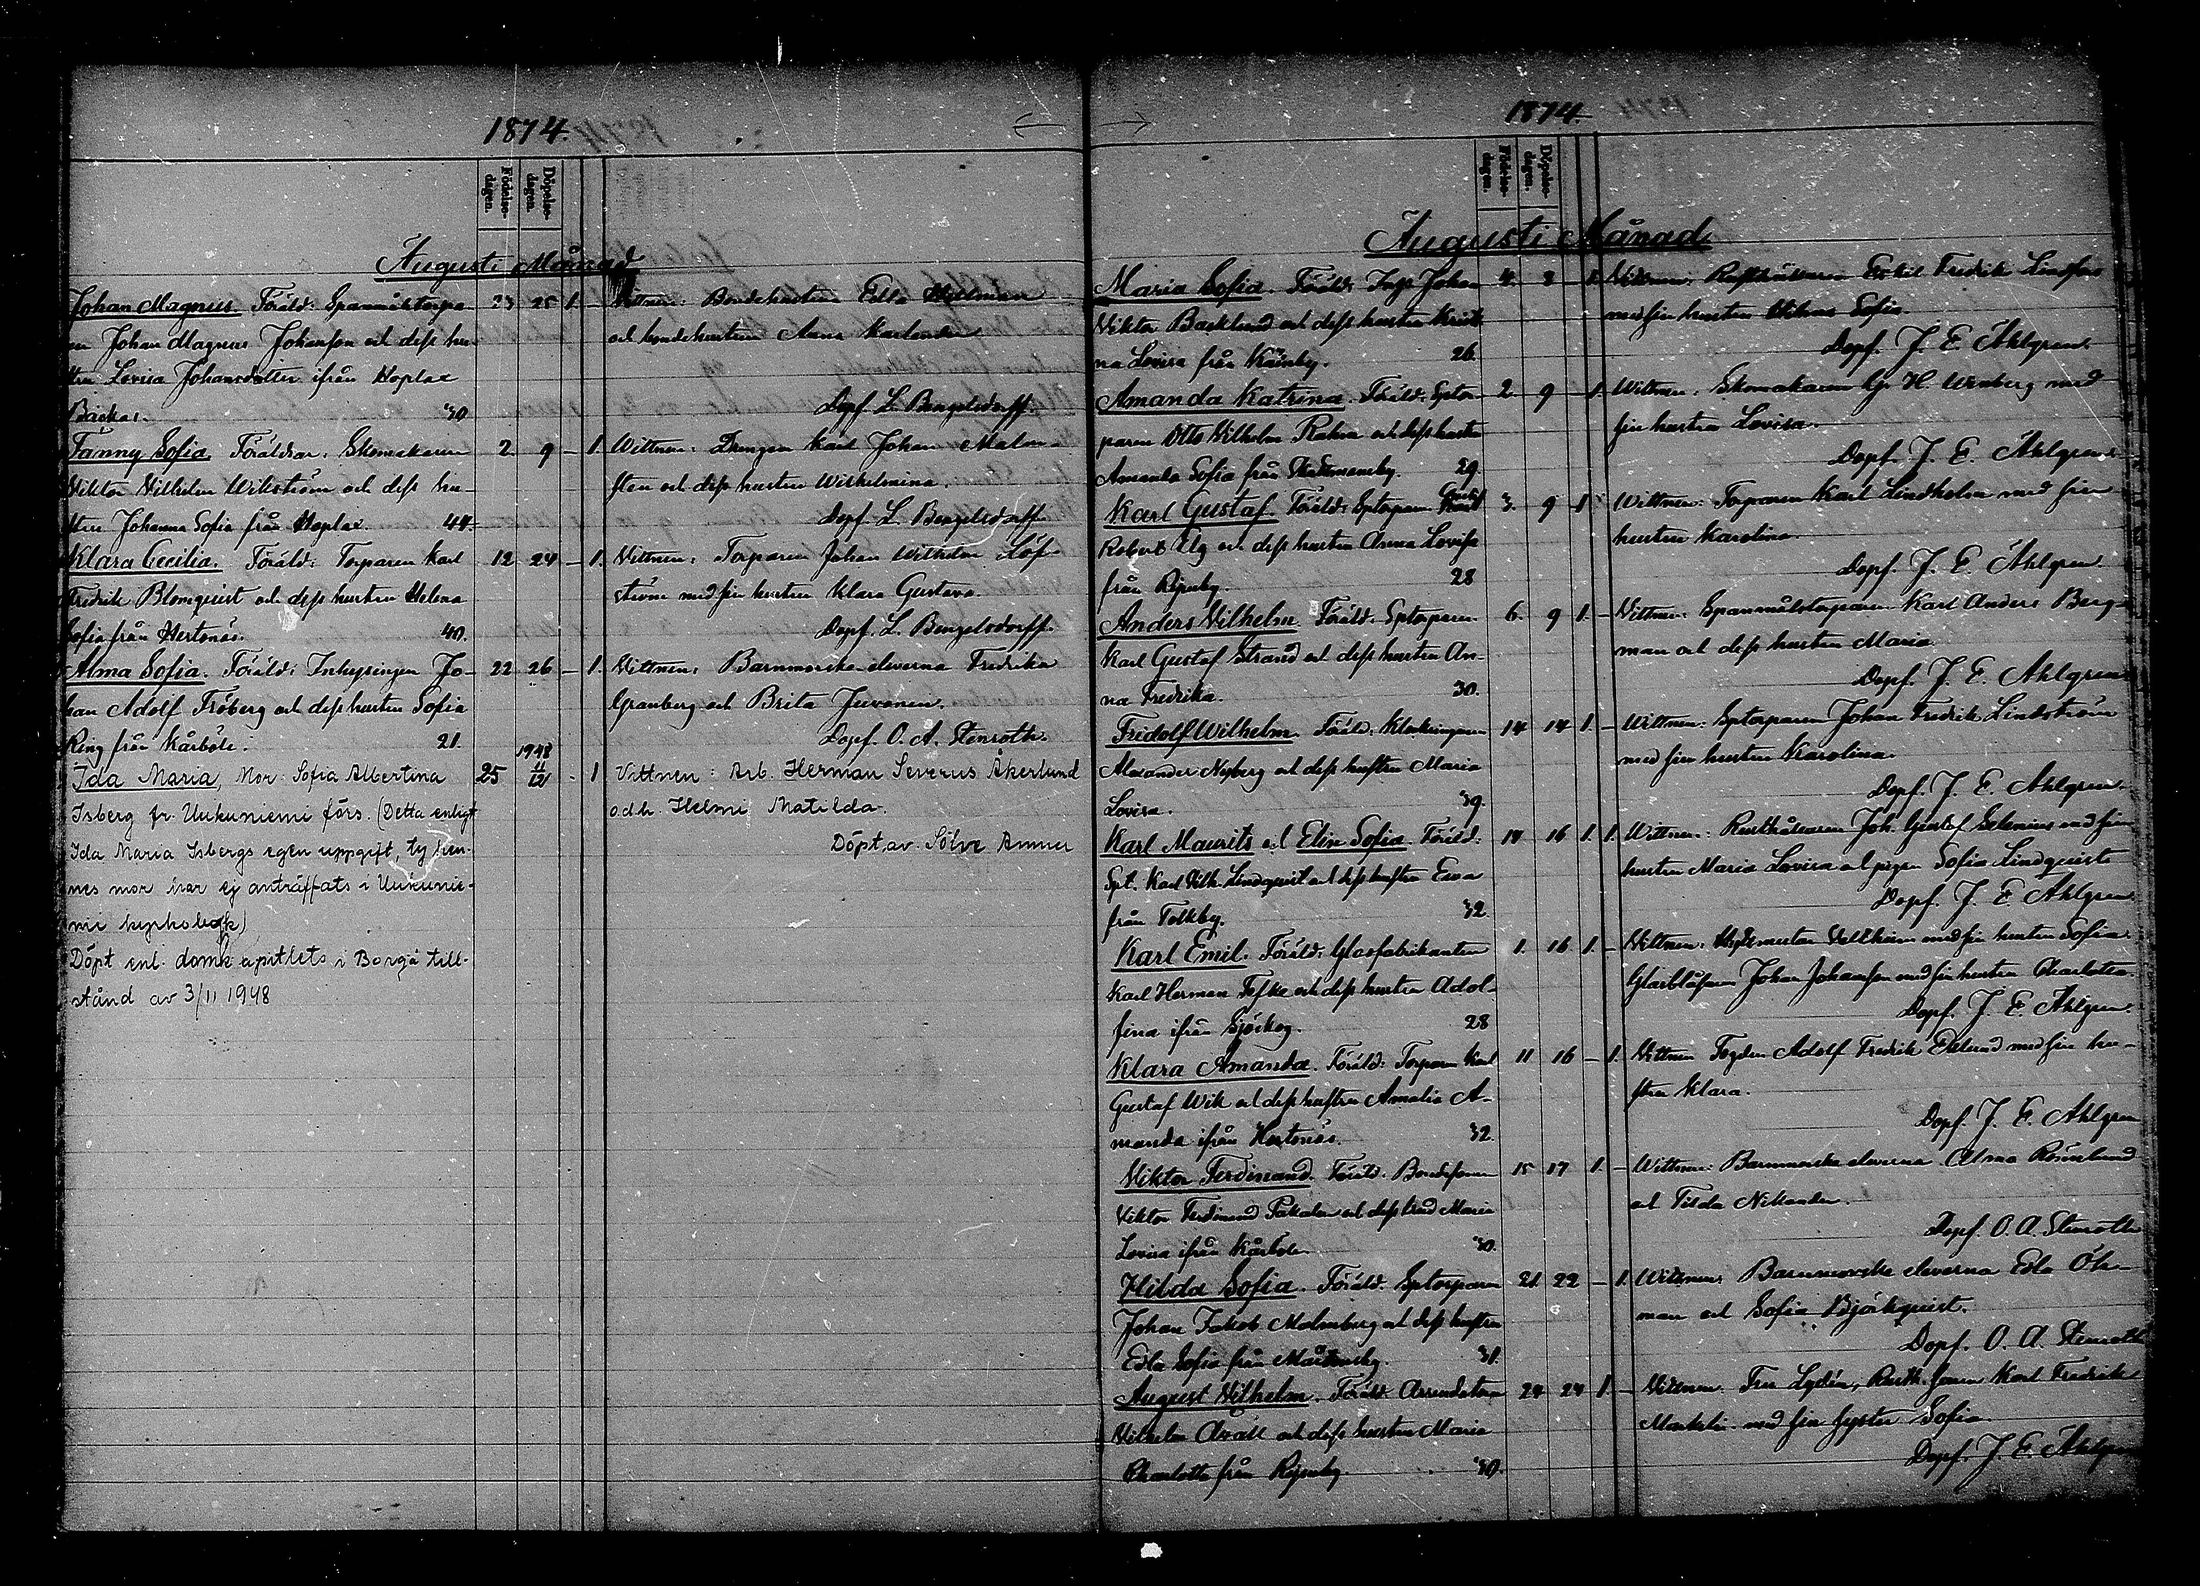 1874.
Födelse-dagen. Döpelse-dagen.
Augusti Månad
Johan Magnus. Föräld: Spanmålstorpa- 23 25 1. – Vittnen: Bondehustrun Edla Hellman
ren Johan Magnus Johansson och dess hu- och bondehustrun Anna Karlander
stru Lovisa Johansdotter ifrån Hoplax
Backas. 30 Dopf. L. Bengelsdorff.
Fanny Sofia. Föräldrar: Skomakaren 2 9 – 1. Wittnen: Drengen Karl Johan Malm-
Viktor Vilhelm Wikström och dess hu- sten och dess hustru Wilhelmina.
stru Johanna Sofia från Hoplax. 44. Dopf. L. Bengelsdorff.
Klara Cecilia. Föräld: Torparen Karl 12 24 – 1. Vittnen: Torparen Johan Wilhelm Löf-
Fredrik Blomquist och dess hustru Helena ström med sin hustru Klara Gustava.
Sofia från Hertonäs. 40. Dopf. L. Bengelsdorff.
Alma Sofia. Föräld: Inhysingen Jo- 22 26 – 1. Vittnen: Barnmorske eleverna Fredrika
han Adolf Fröberg och dess hustru Sofia Granberg och Brita Juvonen.
Ring från Kårböle. 21. Dopf. O. A. Stenroth.
Ida Maria, Mor: Sofia Albertina 25 1948 11/12 - 1 Vittnen: Arb. Herman Severus Åkerlund
Isberg fr. Uukuniemi förs. (Detta enligt o.d.h. Helmi Matilda.
Ida Maria Isbergs egen uppgift, ty hen- Döpt av Sölve Anmer
nes mor har ej anträffats i Uukunie-
mi kyrkobok)
Döpt enl. domkapitlets i Borgå till-
stånd av 3/11 1948
1874.
Födelse-dagen. Döpelse-dagen.
Augusti Månad
Maria Sofia. Föräld: Johan 4. 8 – 1. Vittnen: Rusthållaren Eskil Fredrik Lindfors
Viktor Backlund och dess hustru Kristi- med sin hustru Sofia.
na Lovisa från 26. Dopf. J. E. Ahlgren.
Amanda Katrina. Föräld: Sptor- 2. 9 – 1. Wittnen: Skomakaren G. H. Wenberg med
paren Otto Vilhelm och dess hustru sin hustru Lovisa.
Amanda Sofia från 29. Dopf. J. E. Ahlgren.
Karl Gustaf. Föräld: Sptorparen Gustaf 3. 9 1 Wittnen: Torparen Karl Lindholm med sin
Robert Elg och dess hustru Anna Lovisa hustru Karolina.
från 28 Dopf. J. E. Ahlgren.
Anders Vilhelm. Föräld: Sptorparen 6. 9 1. – Vittnen: Spanmålstorparen Karl Anders Berg-
Karl Gustaf Strand och dess hustru An- man och dess hustru Maria
na Fredrika. 30. Dopf. J. E. Ahlgren
Fridolf Wilhelm. Föräld: Klockringaren 14 14 1. – Wittnen: Sptorparen Johan Fredrik Lindström
Alexander Nyberg och dess hustru Maria med sin hustru Karolina.
Lovisa. 39. Dopf. J. E. Ahlgren.
Karl Maurits och Elin Sofia. Föräld: 14 16 1. 1. Wittnen: Rusthållaren Joh. Gustaf Selenius med sin
Spt. Karl Vilh. Lindquist och dess hustru Ewa hustru Maria Lovisa och pigan Sofia Lindquist.
från Tolkby. 32. Dopf. J. E. Ahlgren.
Karl Emil. Föräld: Glasfabrikanten 1. 16 1. – Vittnen: med sin hustru Sofia.
Karl Herman och dess hustru Adol- Glasblåsaren Johan Johansson med sin hustru Charlotta.
fina ifrån 28 Dopf. J. E. Ahlgren.
Klara Amanda. Föräld: Torparen Karl 11 16 – 1. Vittnen Fogden Adolf Fredrik Eklund med sin hu-
Gustaf Wik och dess hustru Amalia A- stru Klara.
manda ifrån Hertonäs. 32. Dopf. J. E. Ahlgren
Viktor Ferdinand. Föräld: Bondesonen 15 17 1. – Wittnen: Barnmorske eleverna Alma Rönnlund
Viktor Ferdinand och dess hustru Maria och Tilda Nikander.
Lovisa ifrån Kårböle. 30. Dopf. O. A. Stenroth
Hilda Sofia. Föräld: Sptorparen 21. 22 – 1. Wittnen: Barnmorske eleverna Edla Öh-
Johan Jakob Malmberg och dess hustru man och Sofia Björkquist.
Edla Sofia från Mårtensby. 31. Dopf. O. A. Stenroth
August Vilhelm. Föräld: Arrendatorn 24 24 1. – Vittnen: Fru Lydén, Rusth. sonen Karl Fredrik
Vilhelm och dess hustru Maria med sin syster Sofia
Charlotta från 30. Dopf. J. E. Ahlgren